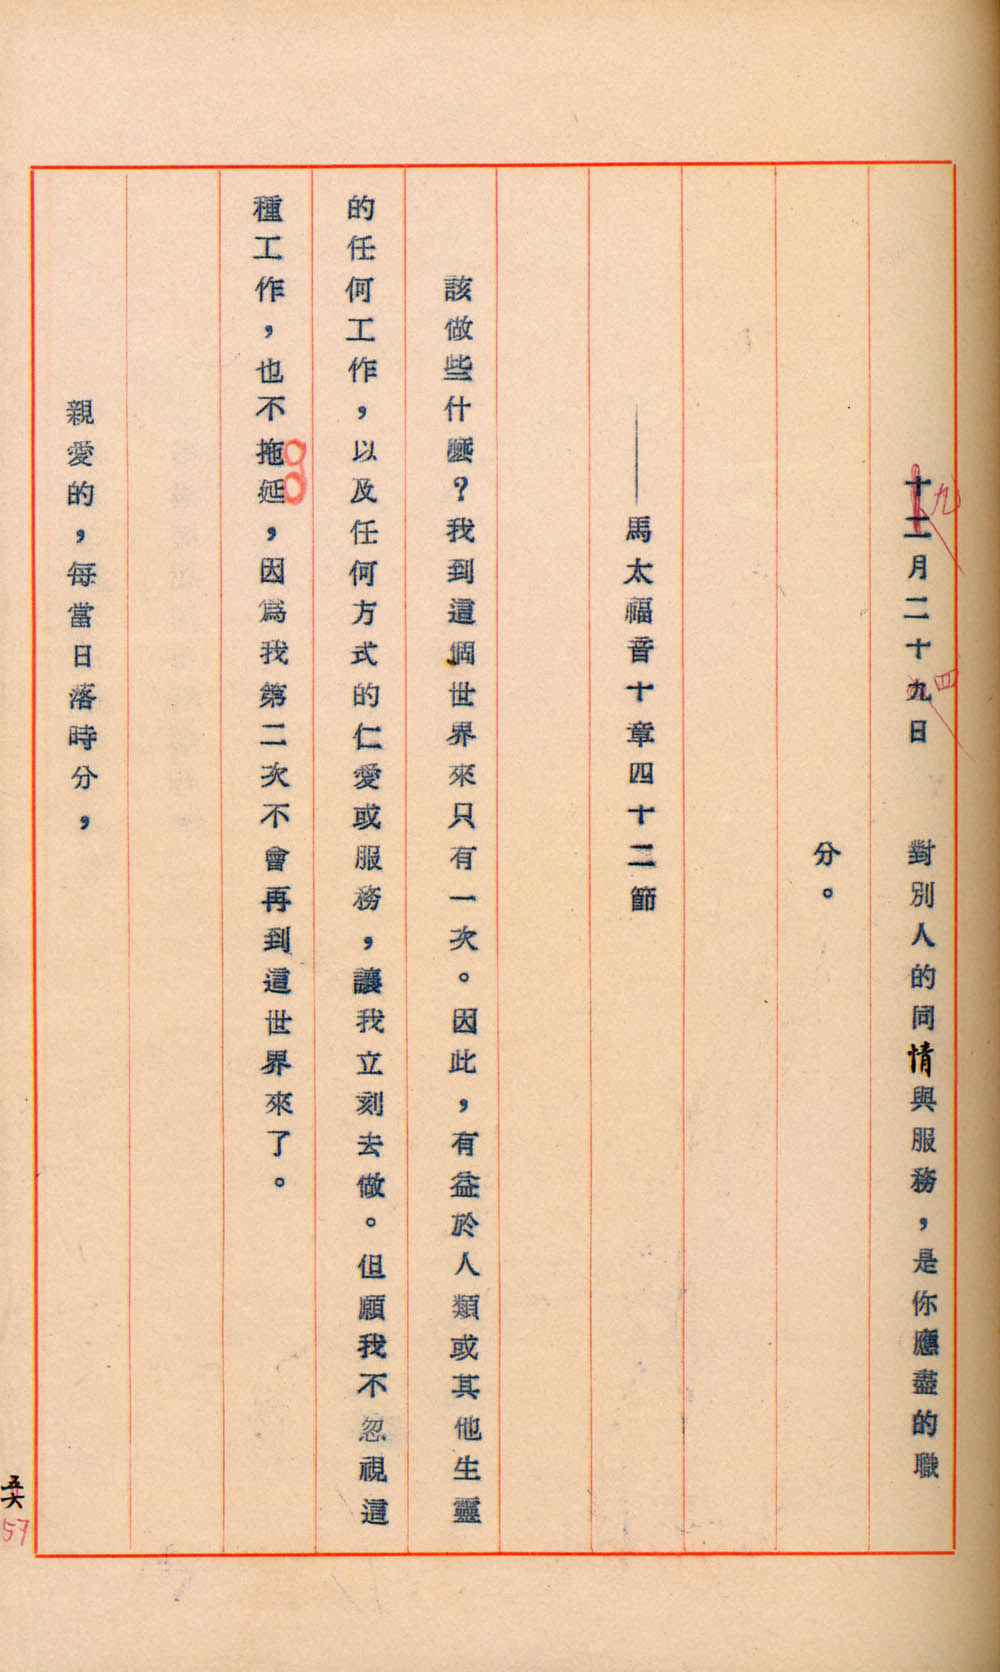 十二月二十九日　對別人的同情與服務，是你應盡的職
九
四
分。
——馬太福音十章四十二節
該做些什麼？我到這個世界來只有一次。因此，有益於人類或其他生靈
的任何工作，以及任何方式的仁愛或服務，讓我立刻去做。但願我不忽視這
種工作，也不拖延，因爲我第二次不會再到這世界來了。
親愛的，每當日落時分，
五六
57